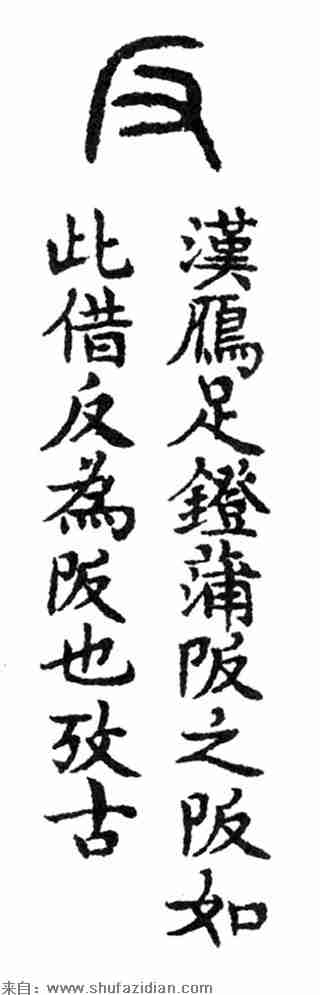 反
漢鴈足鐙蒲阪之阪如
此借反為阪也攷古
来自：www.shufazidian.com